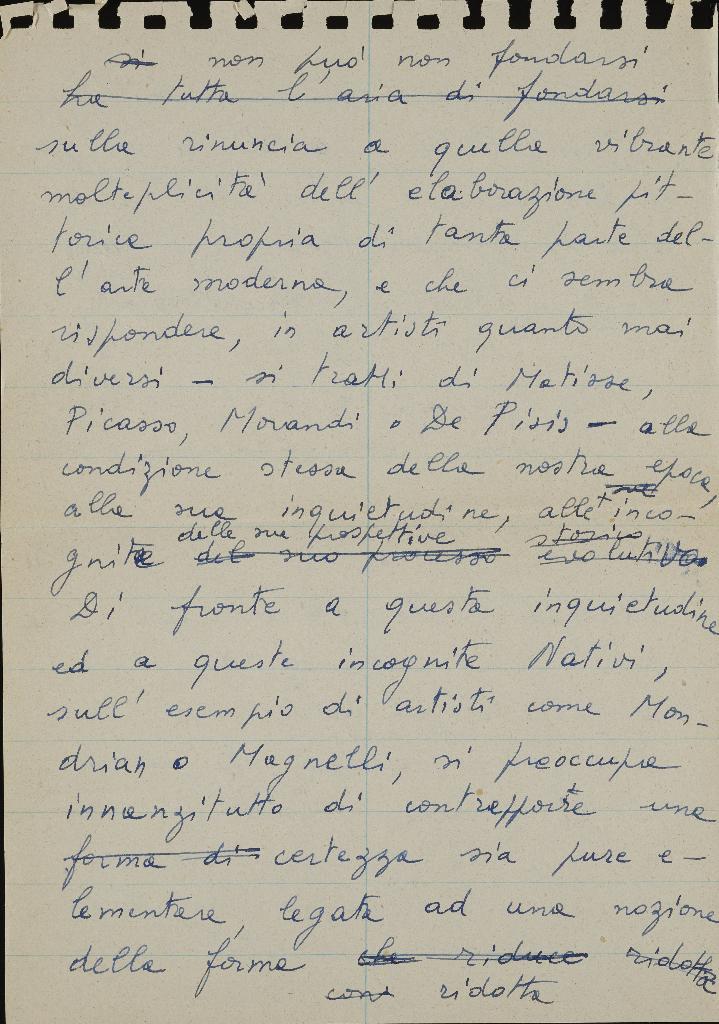 si non può non fondarsi
ha tutta l'aria di fondarsi
sulla rinuncia a quella vibrante
molteplicità dell'elaborazione pit-
torica propria di tanta parte del-
l'arte moderna, e che ci sembra
rispondere, in artisti quanto mai
diversi - si tratti di Matisse,
Picasso, Morandi o De Pisis - alla
condizione stessa della nostra epoca,
alla sua inquietudine, alle inco-
delle sue prospettive storico
gnite del suo processo evolutivo
Di fronte a questa inquietudine
ed a queste incognite Nativi,
sull'esempio di artisti come Mon-
drian o Magnelli, si preoccupa
innanzitutto di contrapporre una
forma di certezza sia pure e-
lementare, legata ad una nozione
della forma che riduce ridotta
così ridotta